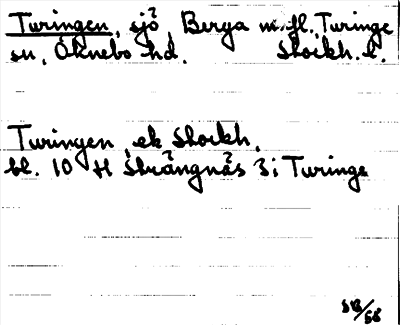 Turingen, sjö, Berga m.fl., Turinge
sn, Öknebo hd. Stockh. l.
Turingen ek Stockh.
bl. 10 H Strängnäs 3; Turinge